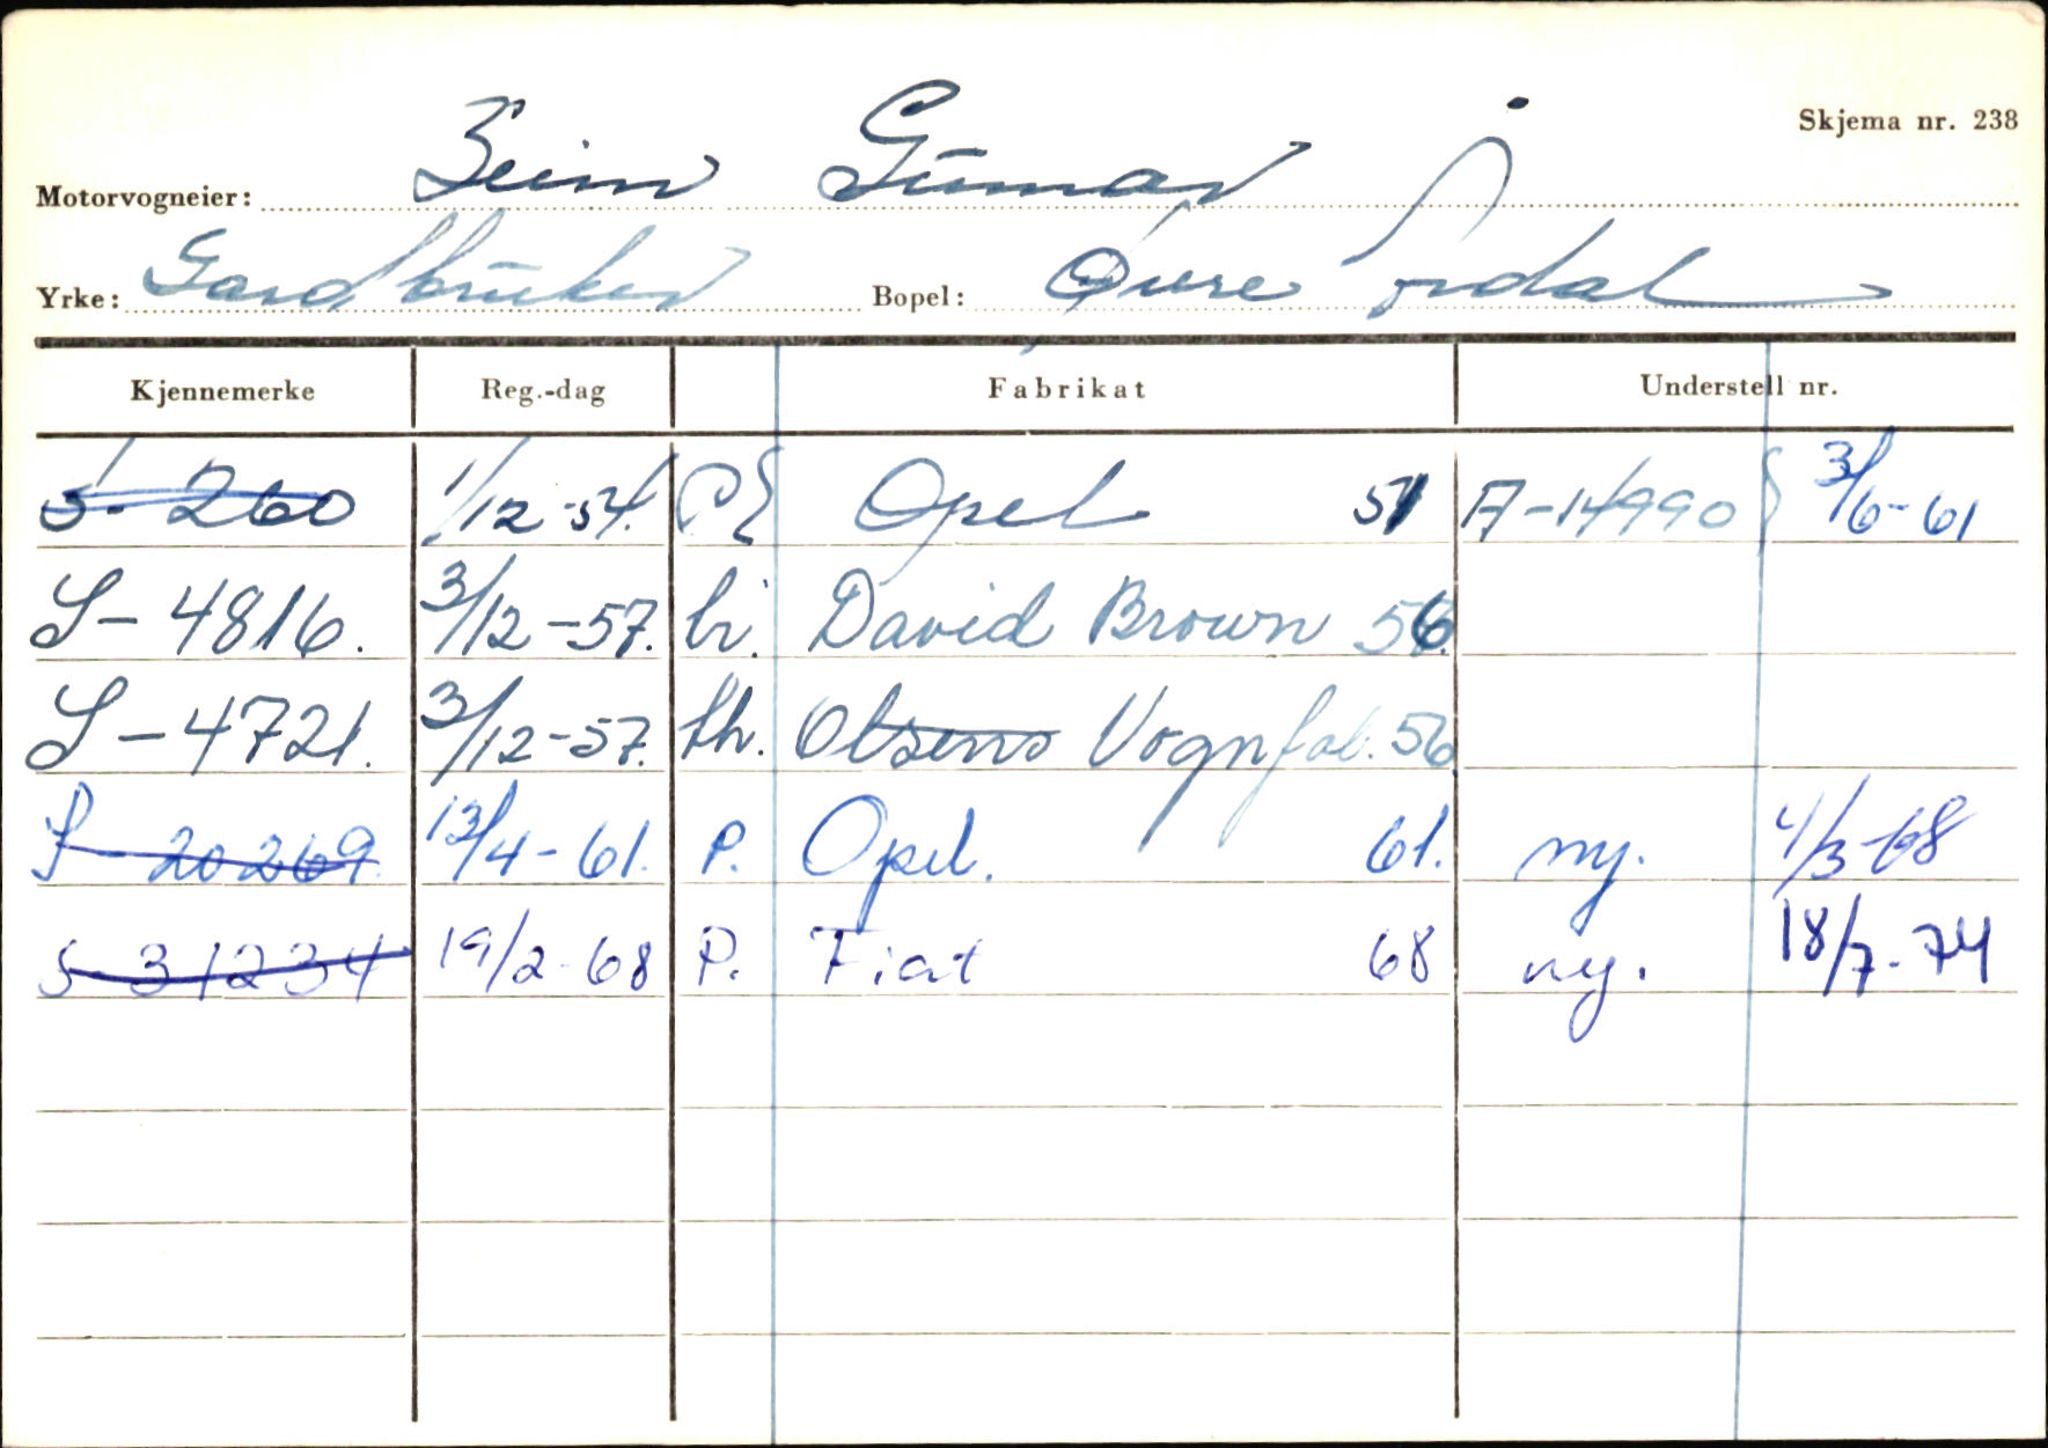 Skjema nr. 238
Motorvogneier: Gunnar
Yrke: Gardbruker Bopel: Øvre Årdal
Kjennemerke Reg.-dag Fabrikat Understell nr.
S-260 1/12-54. P Opel 51 A-14990 3/6-61
S-4816. 3/12-57. bi. David Brown 56.
S-4721. 3/12-57. th. Olsens Vognfab. 56
S-20269 13/4-61. P. Opel. 61. ny. 4/3-68
S-31234 19/2-68 P. Fiat 68 ny. 18/7-74